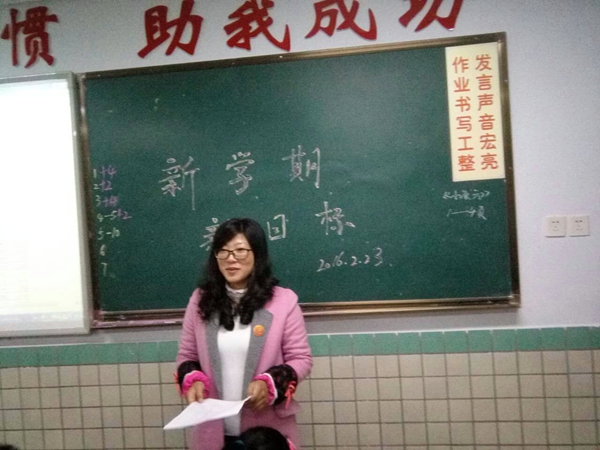 惯 助我成功
发言声音宏亮
作业书写工整
新学期
新目标
2016.2.23
1+4
2+2
3+4
4-5+2
5-10
6
7